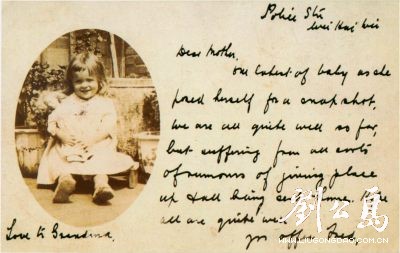 Police Stn
Wei Hai Wei
Dear Mother,
One latest of baby as she
posed herself for a snap shot,
We are all quite well so far,
but suffering from all sorts
of rumours of joining place
up & all being sent home. Hope
all are quite well
yrs aff. Fred
Love to Grandma.
劉公島
WWW.LIUGONGDAO.COM.CN